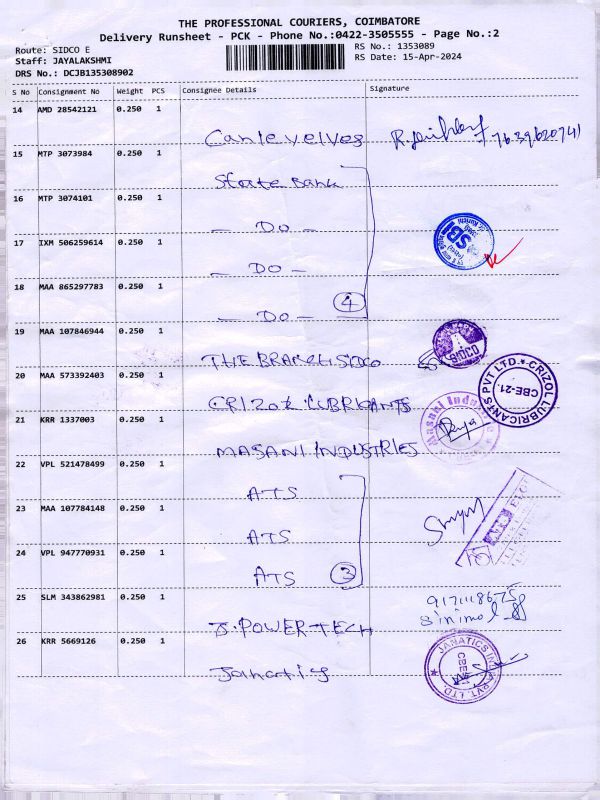 THE PROFESSIONAL COURIERS, COIMBATORE
Delivery Runsheet - PCK - Phone No.:0422-3505555 - Page No.:2
Route: SIDCO E
RS No.: 1353089
Staff: JAYALAKSHMI
RS Date: 15-Apr-2024
DRS No.: DCJB135308902
S No Consignment No Weight PCS Consignee Details Signature
14 AMD 28542121 0.250 1
15 MTP 3073984 0.250 1
State Bank
16 MTP 3074101 0.250 1
- DO -
17 IXM 506259614 0.250 1
SB
- DO -
18 MAA 865297783 0.250 1
- DO - 4
19 MAA 107846944 0.250 1
SIDCO
THE BRANCH SIDCO
20 MAA 573392403 0.250 1
CRIZOL LUBRICANTS PVT LTD.
CBE-21.
CRIZOL LUBRICANTS
21 KRR 1337003 0.250 1
MASANI INDUSTRIES
22 VPL 521478499 0.250 1
ATS
23 MAA 107784148 0.250 1
ATS
24 VPL 947770931 0.250 1
ATS 3
25 SLM 343862981 0.250 1
Sinimol
J. POWER-TECH
26 KRR 5669126 0.250 1
JANATICS PVT. LTD.